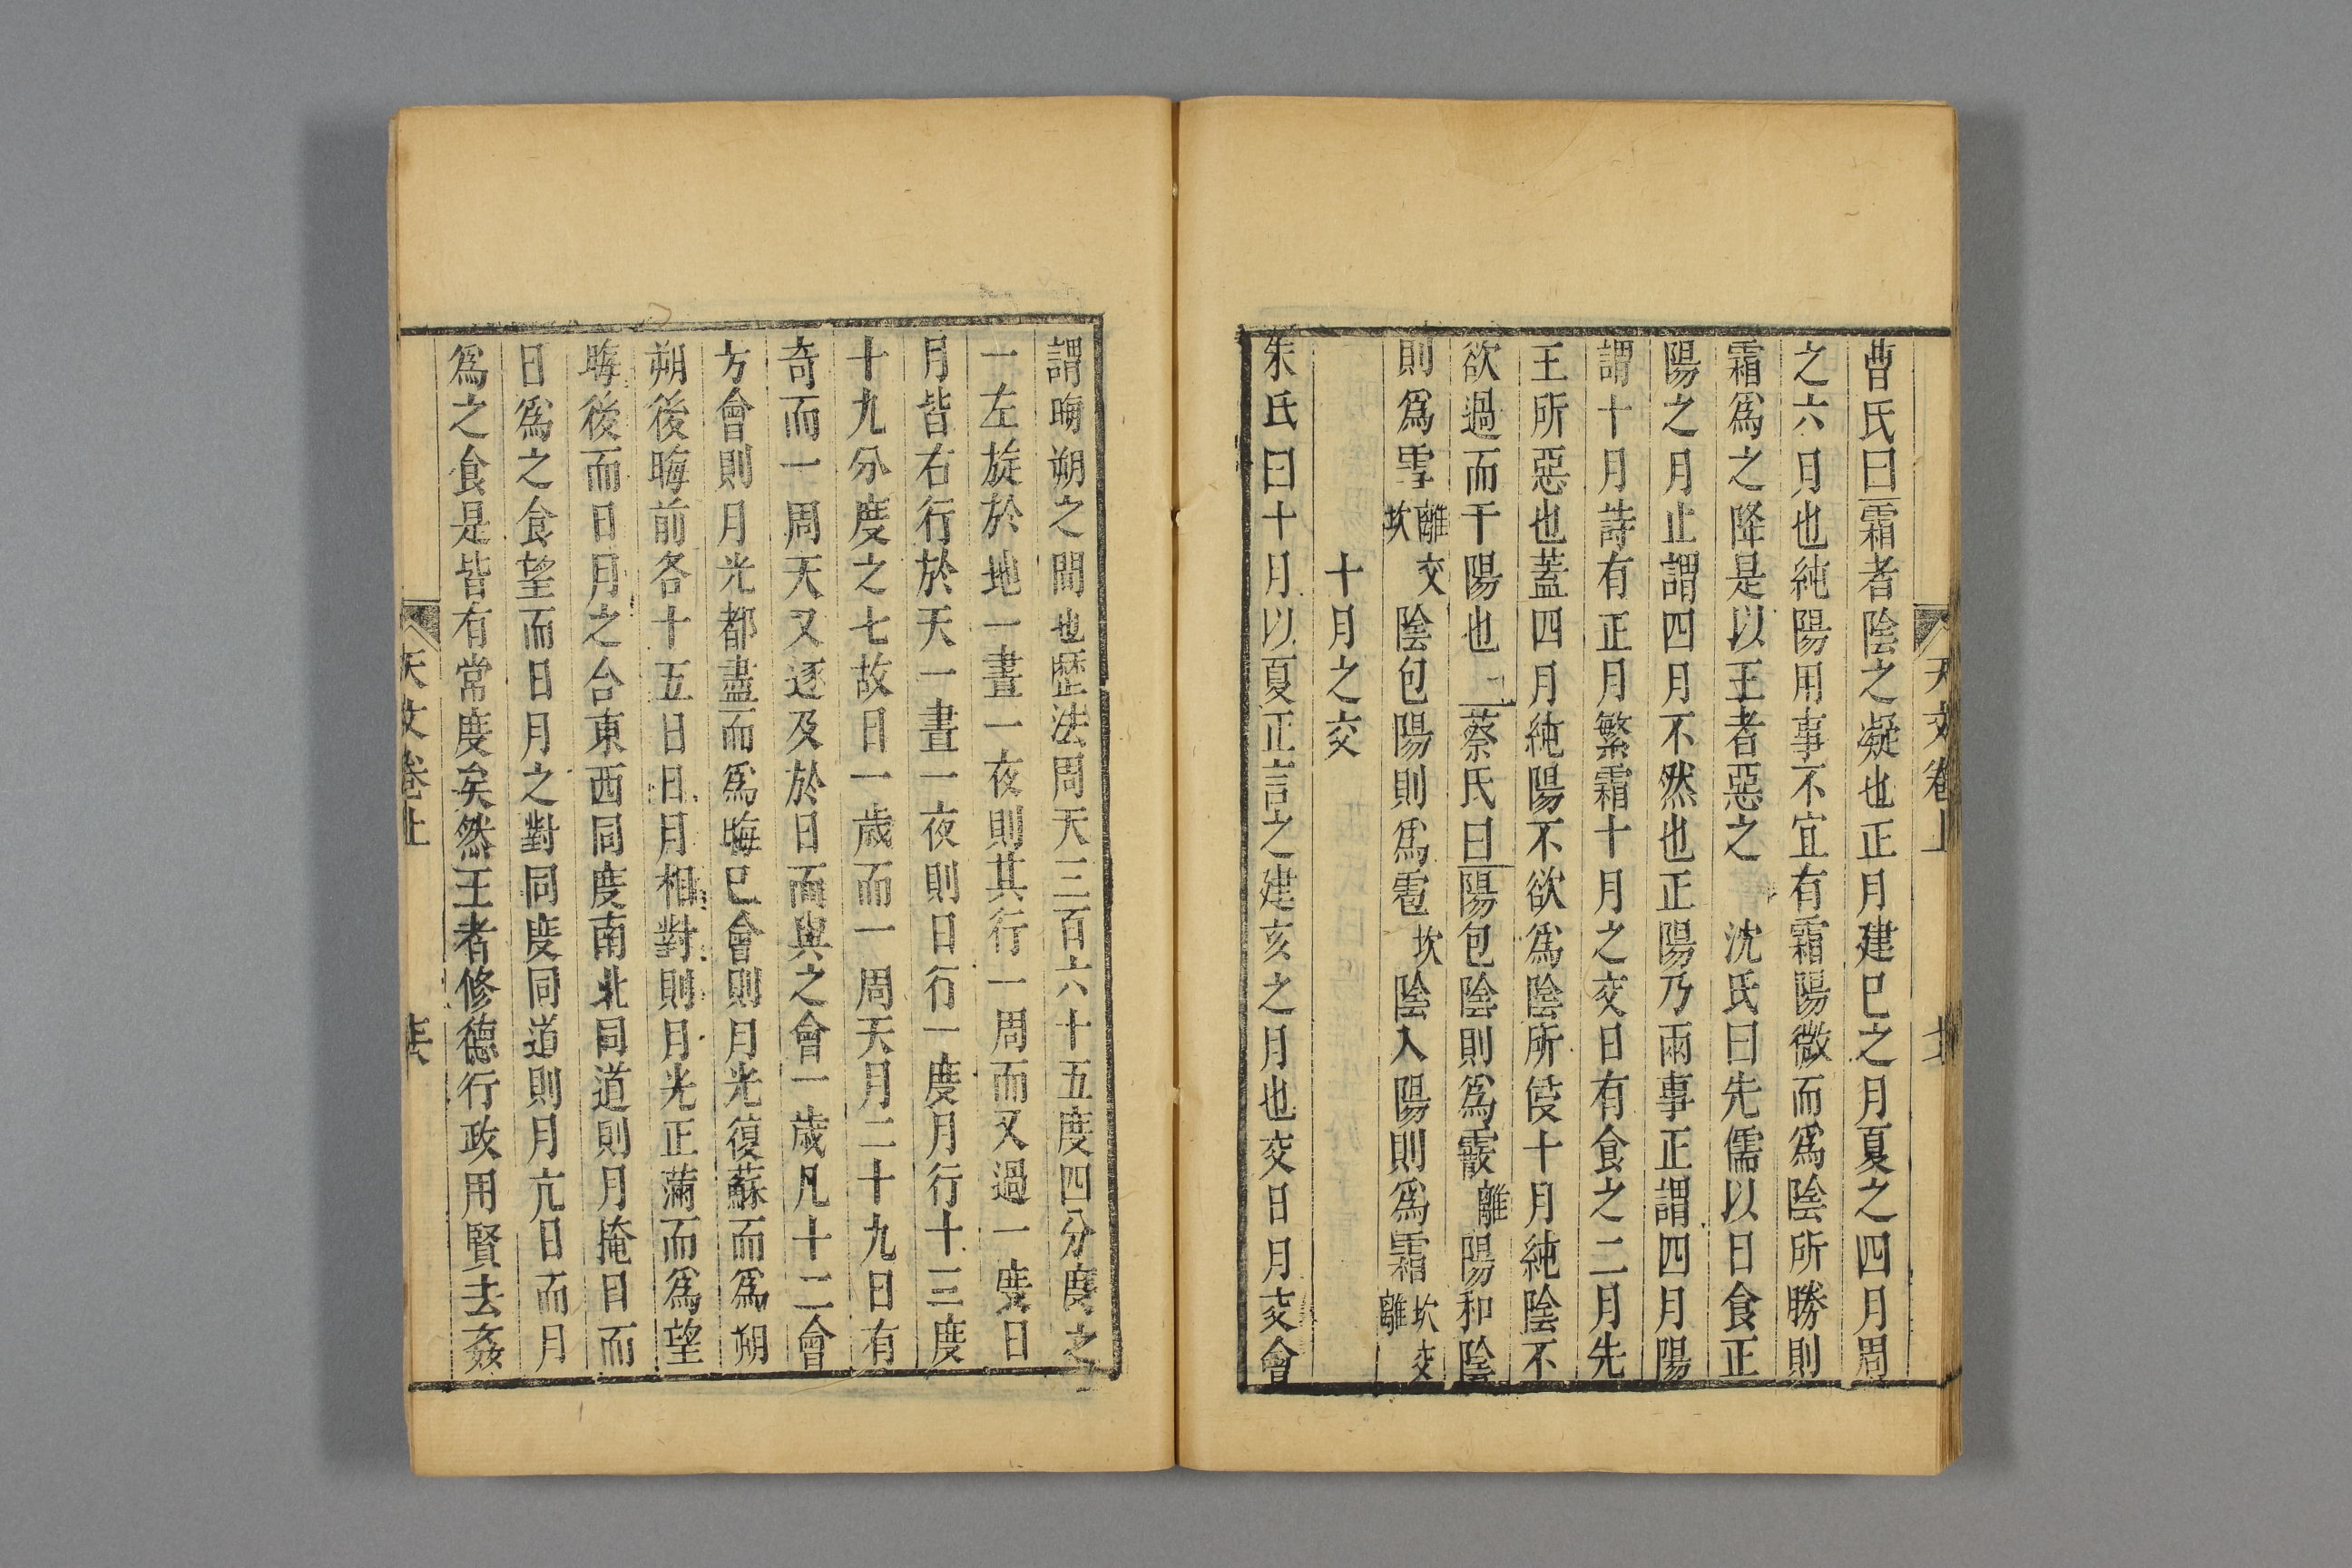 曹氏曰霜者陰之凝也正月建巳之月夏之四月周
之六月也純陽用事不宜有霜陽微而爲陰所勝則
霜爲之降是以王者惡之 沈氏曰先儒以日食正
陽之月止謂四月不然也正陽乃兩事正謂四月陽
謂十月詩有正月繁霜十月之交日有食之二月先
王所惡也蓋四月純陽不欲爲陰所侵十月純陰不
欲過而干陽也 蔡氏曰陽包陰則爲霰離陽和陰
則爲雪離交坎陰包陽則爲雹坎陰入陽則爲霜坎交離
十月之交
朱氏曰十月以夏正言之建亥之月也交日月交會
天文卷上
謂晦朔之間也歷法周天三百六十五度四分度之
一左旋於地一晝一夜則其行一周而又過一度日
月皆右行於天一晝一夜則日行一度月行十三度
十九分度之七故日一歲而一周天月二十九日有
奇而一周天又逐及於日而與之會一歲凡十二會
方會則月光都盡而爲晦已會則月光復蘇而爲朔
朔後晦前各十五日日月相對則月光正滿而爲望
晦後而日月之合東西同度南北同道則月掩日而
日爲之食望而日月之對同度同道則月亢日而月
爲之食是皆有常度矣然王者修德行政用賢去姦
天文卷上